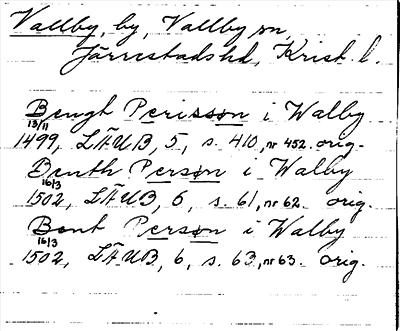 Vallby, by, Vallby sn,
Järrestads hd, Krist. l.
Bengt Perisson i Walby
13/11
1499, LÄUB, 5, s. 410, nr 452. orig.
Benth Person i Walby
16/3
1502, LÄUB, 6, s. 61, nr 62. orig.
Bent Person i Walby
16/3
1502, LÄUB, 6, s. 63, nr 63. orig.